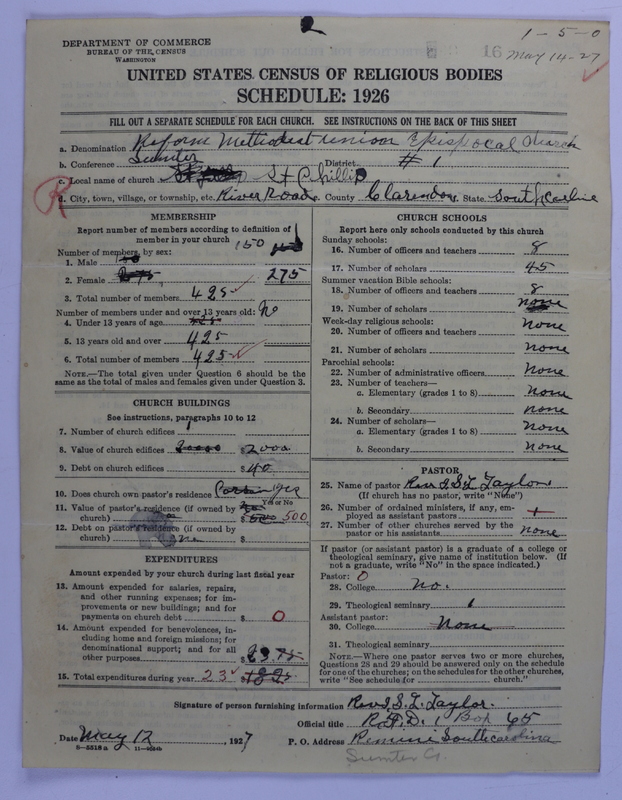 1-5-0
16 May 14-27
DEPARTMENT OF COMMERCE
BUREAU OF THE CENSUS
WASHINGTON
UNITED STATES CENSUS OF RELIGIOUS BODIES
SCHEDULE: 1926
FILL OUT A SEPARATE SCHEDULE FOR EACH CHURCH. SEE INSTRUCTIONS ON THE BACK OF THIS SHEET
a. Denomination Reform Methodist union Epispocal Church
b. Conference Sumter District # 1
c. Local name of church St Phillip
R
d. City, town, village, or township, etc. River Road County Clarendon State South Carline
MEMBERSHIP
Report number of members according to definition of
member in your church
Number of members, by sex:
1. Male 150
2. Female 275
3. Total number of members 425
Number of members under and over 13 years old:
4. Under 13 years of age No
5. 13 years old and over 425
6. Total number of members 425
NOTE.—The total given under Question 6 should be
same as the total of males and females given under Question 3.
CHURCH BUILDINGS
See instructions, paragraphs 10 to 12
7. Number of church edifices 1
8. Value of church edifices $ 2000
9. Debt on church edifices $ 40
10. Does church own pastor's residence
Yes or No
11. Value of pastor's residence (if owned by
church) $ 500
12. Debt on pastor's residence (if owned by
church) $
EXPENDITURES
Amount expended by your church during last fiscal year
13. Amount expended for salaries, repairs,
and other running expenses; for im-
provements or new buildings; and for
payments on church debt $ 0
14. Amount expended for benevolences, in-
cluding home and foreign missions; for
denominational support; and for all
other purposes $
15. Total expenditures during year 23 $
CHURCH SCHOOLS
Report here only schools conducted by this church
Sunday schools:
16. Number of officers and teachers 8
17. Number of scholars 45
Summer vacation Bible schools:
18. Number of officers and teachers 8
19. Number of scholars none
Week-day religious schools:
20. Number of officers and teachers None
21. Number of scholars None
Parochial schools:
22. Number of administrative officers None
23. Number of teachers—
a. Elementary (grades 1 to 8) None
b. Secondary None
24. Number of scholars—
a. Elementary (grades 1 to 8) None
b. Secondary None
PASTOR
25. Name of pastor Rev I. S. L. Taylor
(If church has no pastor, write "None")
26. Number of ordained ministers, if any, em-
ployed as assistant pastors
27. Number of other churches served by the
pastor or his assistants none
If pastor (or assistant pastor) is a graduate of a college or
theological seminary, give name of institution below. (If
not a graduate, write "No" in the space indicated.)
Pastor: 0
28. College No.
29. Theological seminary
Assistant pastor:
30. College None
31. Theological seminary
NOTE.—Where one pastor serves two or more churches,
Questions 28 and 29 should be answered only on the schedule
for one of the churches; on the schedules for the other churches,
write "See schedule for church."
Signature of person furnishing information Rev I. S. L. Taylor.
Official title R.F.D. 1 Box 65
Date May 12, 1927 P. O. Address Remini South carolina
8—5518 a 11—9024b
Sumter Co.